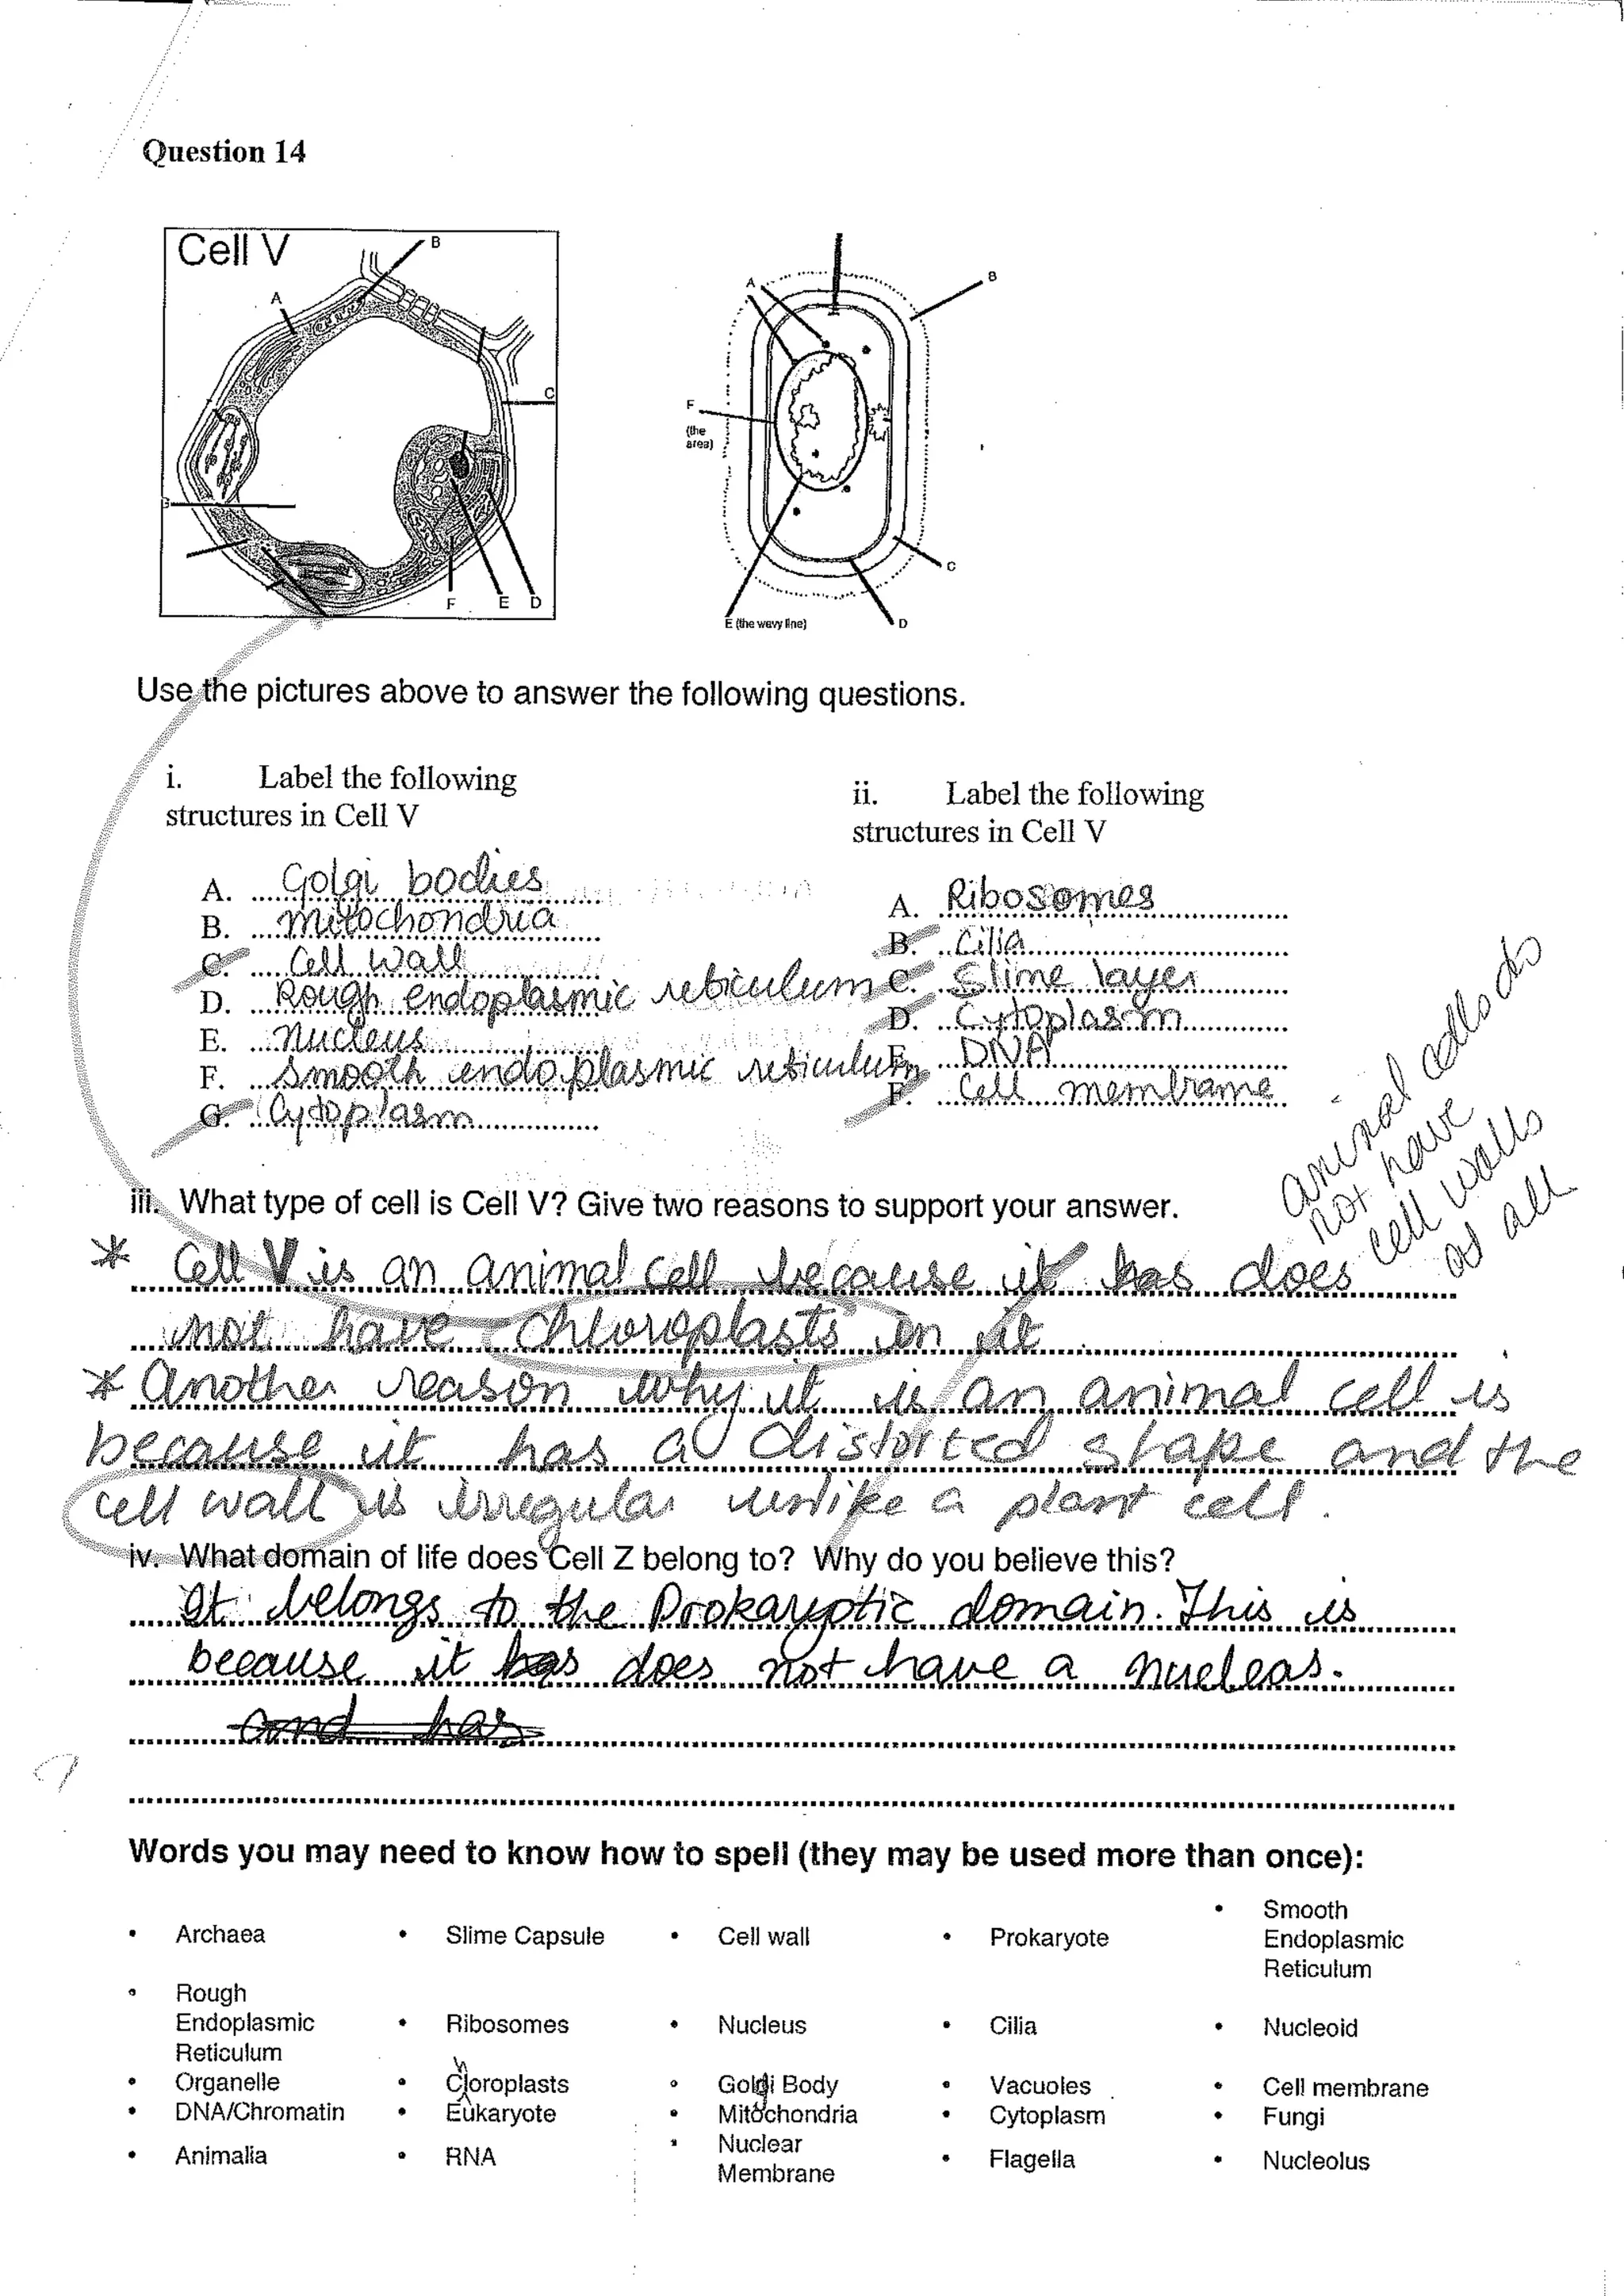 Question 14
Cell V
B
A
C
G
F
E
D
A
B
F
(the
area)
C
E (the wavy line)
D
Use the pictures above to answer the following questions.
i. Label the following
structures in Cell V
A. Golgi bodies
B. Mitochondria
C. Cell Wall
D. Rough endoplasmic reticulum
E. Nucleus
F. Smooth endoplasmic reticulum
G. Cytoplasm
ii. Label the following
structures in Cell V
A. Ribosomes
B. Cilia
C. Slime layer
D. Cytoplasm
E. DNA
F. Cell membrane
animal cells do
not have
cell walls
at all
iii. What type of cell is Cell V? Give two reasons to support your answer.
* Cell V is an animal cell because it has does
not have chloroplasts in it
* Another reason why it is an animal cell is
because it has a distorted shape and the
cell wall is irregular unlike a plant cell.
iv. What domain of life does Cell Z belong to? Why do you believe this?
It belongs to the Prokaryotic domain. This is
because it has does not have a nucleas.
and has
Words you may need to know how to spell (they may be used more than once):
• Archaea • Slime Capsule • Cell wall • Prokaryote • Smooth Endoplasmic Reticulum
• Rough Endoplasmic Reticulum • Ribosomes • Nucleus • Cilia • Nucleoid
• Organelle • Chloroplasts • Golgi Body • Vacuoles • Cell membrane
• DNA/Chromatin • Eukaryote • Mitochondria • Cytoplasm • Fungi
• Animalia • RNA • Nuclear Membrane • Flagella • Nucleolus